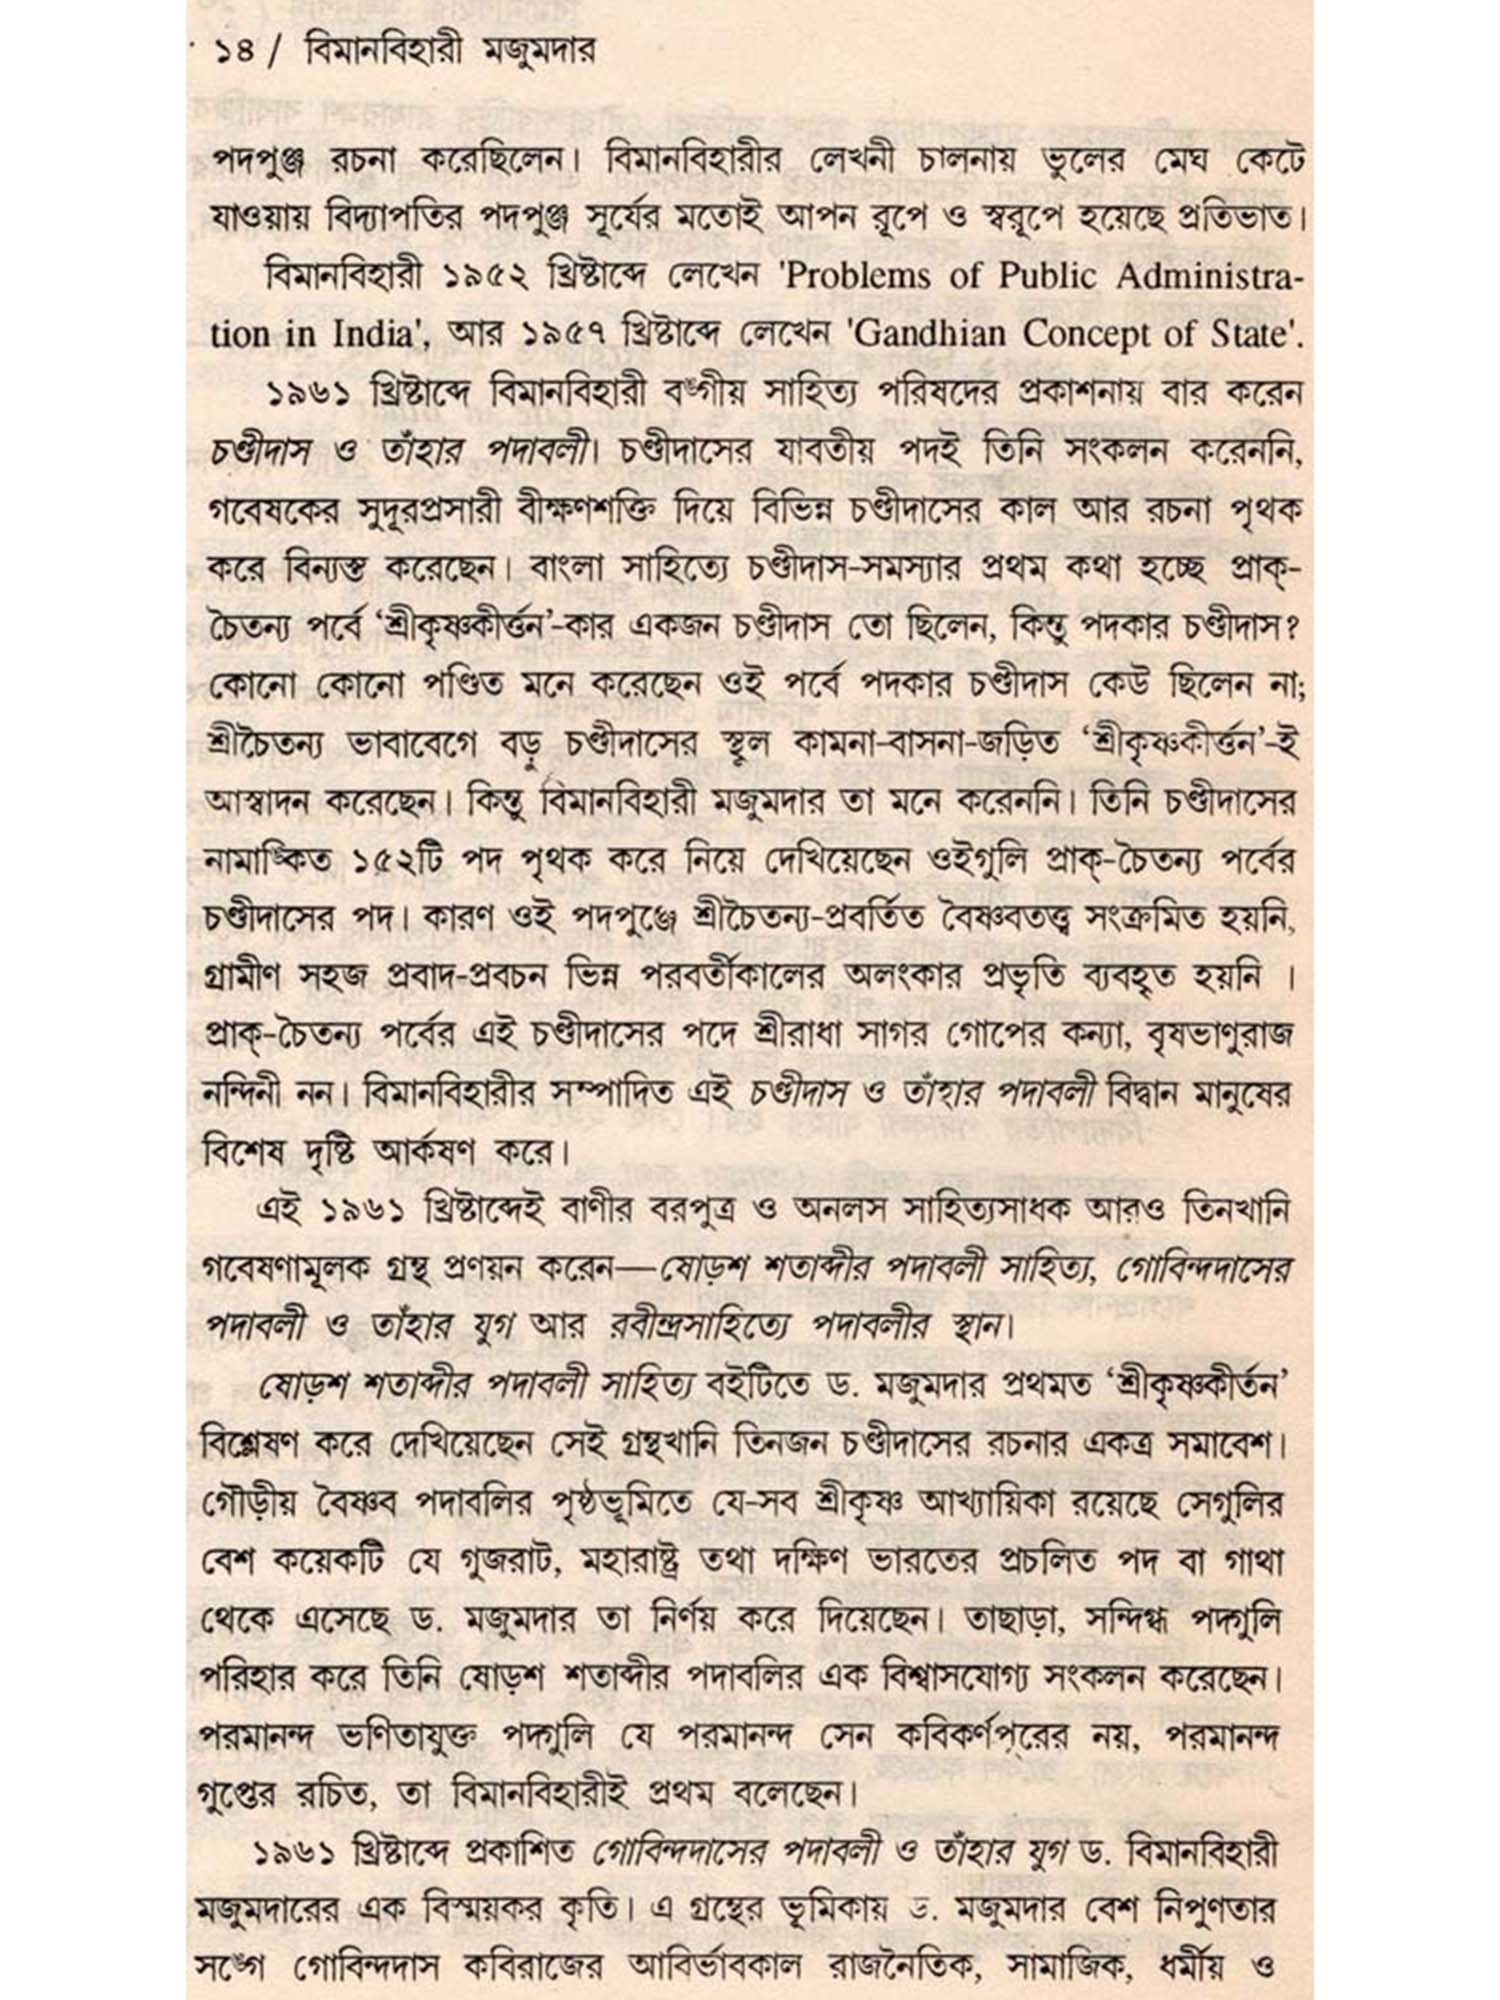 ১৪ / বিমানবিহারী মজুমদার
পদপুঞ্জ রচনা করেছিলেন। বিমানবিহারীর লেখনী চালনায় ভুলের মেঘ কেটে
যাওয়ায় বিদ্যাপতির পদপুঞ্জ সূর্যের মতোই আপন রূপে ও স্বরূপে হয়েছে প্রতিভাত।
বিমানবিহারী ১৯৫২ খ্রিষ্টাব্দে লেখেন 'Problems of Public Administra-
tion in India', আর ১৯৫৭ খ্রিষ্টাব্দে লেখেন 'Gandhian Concept of State'.
১৯৬১ খ্রিষ্টাব্দে বিমানবিহারী বঙ্গীয় সাহিত্য পরিষদের প্রকাশনায় বার করেন
চণ্ডীদাস ও তাঁহার পদাবলী। চণ্ডীদাসের যাবতীয় পদই তিনি সংকলন করেননি,
গবেষকের সুদূরপ্রসারী বীক্ষণশক্তি দিয়ে বিভিন্ন চণ্ডীদাসের কাল আর রচনা পৃথক
করে বিন্যস্ত করেছেন। বাংলা সাহিত্যে চণ্ডীদাস-সমস্যার প্রথম কথা হচ্ছে প্রাক্-
চৈতন্য পর্বে ‘শ্রীকৃষ্ণকীর্ত্তন’-কার একজন চণ্ডীদাস তো ছিলেন, কিন্তু পদকার চণ্ডীদাস?
কোনো কোনো পণ্ডিত মনে করেছেন ওই পর্বে পদকার চণ্ডীদাস কেউ ছিলেন না;
শ্রীচৈতন্য ভাবাবেগে বড়ু চণ্ডীদাসের স্থূল কামনা-বাসনা-জড়িত ‘শ্রীকৃষ্ণকীর্ত্তন’-ই
আস্বাদন করেছেন। কিন্তু বিমানবিহারী মজুমদার তা মনে করেননি। তিনি চণ্ডীদাসের
নামাঙ্কিত ১৫২টি পদ পৃথক করে নিয়ে দেখিয়েছেন ওইগুলি প্রাক্-চৈতন্য পর্বের
চণ্ডীদাসের পদ। কারণ ওই পদপুঞ্জে শ্রীচৈতন্য-প্রবর্তিত বৈষ্ণবতত্ত্ব সংক্রমিত হয়নি,
গ্রামীণ সহজ প্রবাদ-প্রবচন ভিন্ন পরবর্তীকালের অলংকার প্রভৃতি ব্যবহৃত হয়নি ।
প্রাক্-চৈতন্য পর্বের এই চণ্ডীদাসের পদে শ্রীরাধা সাগর গোপের কন্যা, বৃষভাণুরাজ
নন্দিনী নন। বিমানবিহারীর সম্পাদিত এই চণ্ডীদাস ও তাঁহার পদাবলী বিদ্বান মানুষের
বিশেষ দৃষ্টি আর্কষণ করে।
এই ১৯৬১ খ্রিষ্টাব্দেই বাণীর বরপুত্র ও অনলস সাহিত্যসাধক আরও তিনখানি
গবেষণামূলক গ্রন্থ প্রণয়ন করেন—ষোড়শ শতাব্দীর পদাবলী সাহিত্য, গোবিন্দদাসের
পদাবলী ও তাঁহার যুগ আর রবীন্দ্রসাহিত্যে পদাবলীর স্থান।
ষোড়শ শতাব্দীর পদাবলী সাহিত্য বইটিতে ড. মজুমদার প্রথমত ‘শ্রীকৃষ্ণকীর্তন’
বিশ্লেষণ করে দেখিয়েছেন সেই গ্রন্থখানি তিনজন চণ্ডীদাসের রচনার একত্র সমাবেশ।
গৌড়ীয় বৈষ্ণব পদাবলির পৃষ্ঠভূমিতে যে-সব শ্রীকৃষ্ণ আখ্যায়িকা রয়েছে সেগুলির
বেশ কয়েকটি যে গুজরাট, মহারাষ্ট্র তথা দক্ষিণ ভারতের প্রচলিত পদ বা গাথা
থেকে এসেছে ড. মজুমদার তা নির্ণয় করে দিয়েছেন। তাছাড়া, সন্দিগ্ধ পদগুলি
পরিহার করে তিনি ষোড়শ শতাব্দীর পদাবলির এক বিশ্বাসযোগ্য সংকলন করেছেন।
পরমানন্দ ভণিতাযুক্ত পদগুলি যে পরমানন্দ সেন কবিকর্ণপূরের নয়, পরমানন্দ
গুপ্তের রচিত, তা বিমানবিহারীই প্রথম বলেছেন।
১৯৬১ খ্রিষ্টাব্দে প্রকাশিত গোবিন্দদাসের পদাবলী ও তাঁহার যুগ ড. বিমানবিহারী
মজুমদারের এক বিস্ময়কর কৃতি। এ গ্রন্থের ভূমিকায় ড. মজুমদার বেশ নিপুণতার
সঙ্গে গোবিন্দদাস কবিরাজের আবির্ভাবকাল রাজনৈতিক, সামাজিক, ধর্মীয় ও